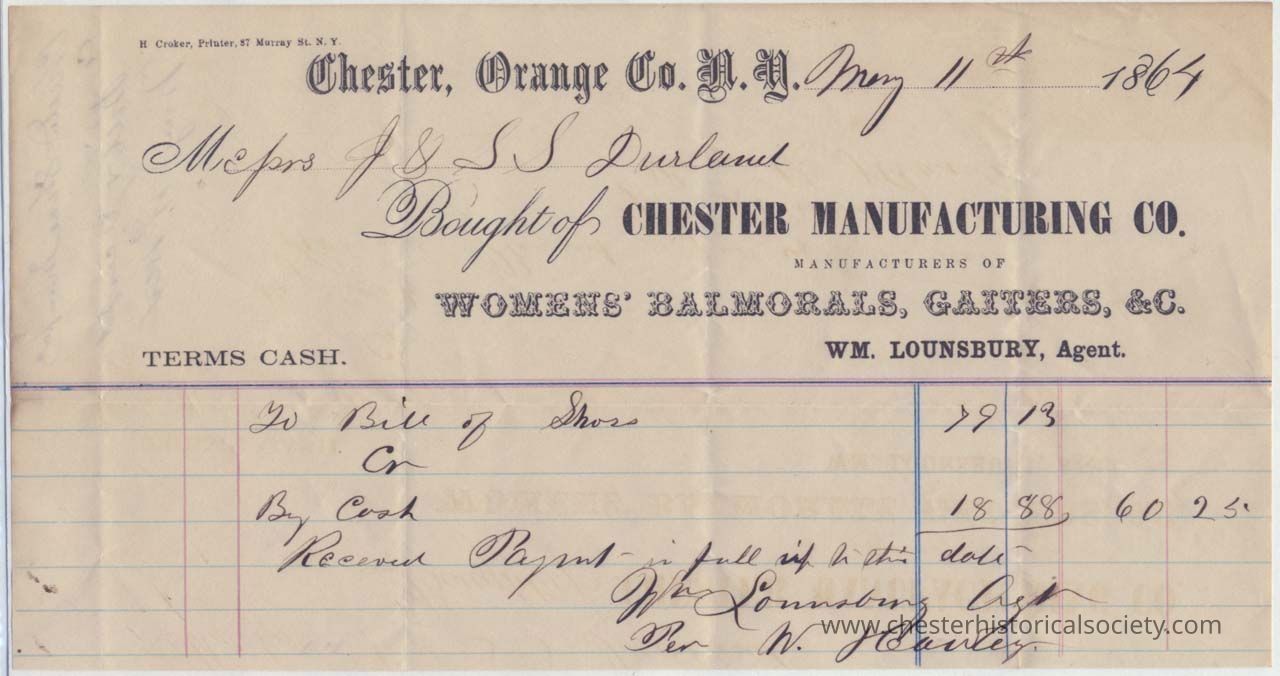 H Croker, Printer, 87 Murray St. N. Y.
Chester, Orange Co. N. Y. May 11th 1864
Messrs J & S S Durland
Bought of CHESTER MANUFACTURING CO.
MANUFACTURERS OF
WOMENS' BALMORALS, GAITERS, &C.
TERMS CASH.
WM. LOUNSBURY, Agent.
To Bill of Shoes 79 13
Cr
By Cash 18 88 60 25
Received Paymt in full up to this date
Wm Lounsbury Agt
Per W.
www.chesterhistoricalsociety.com